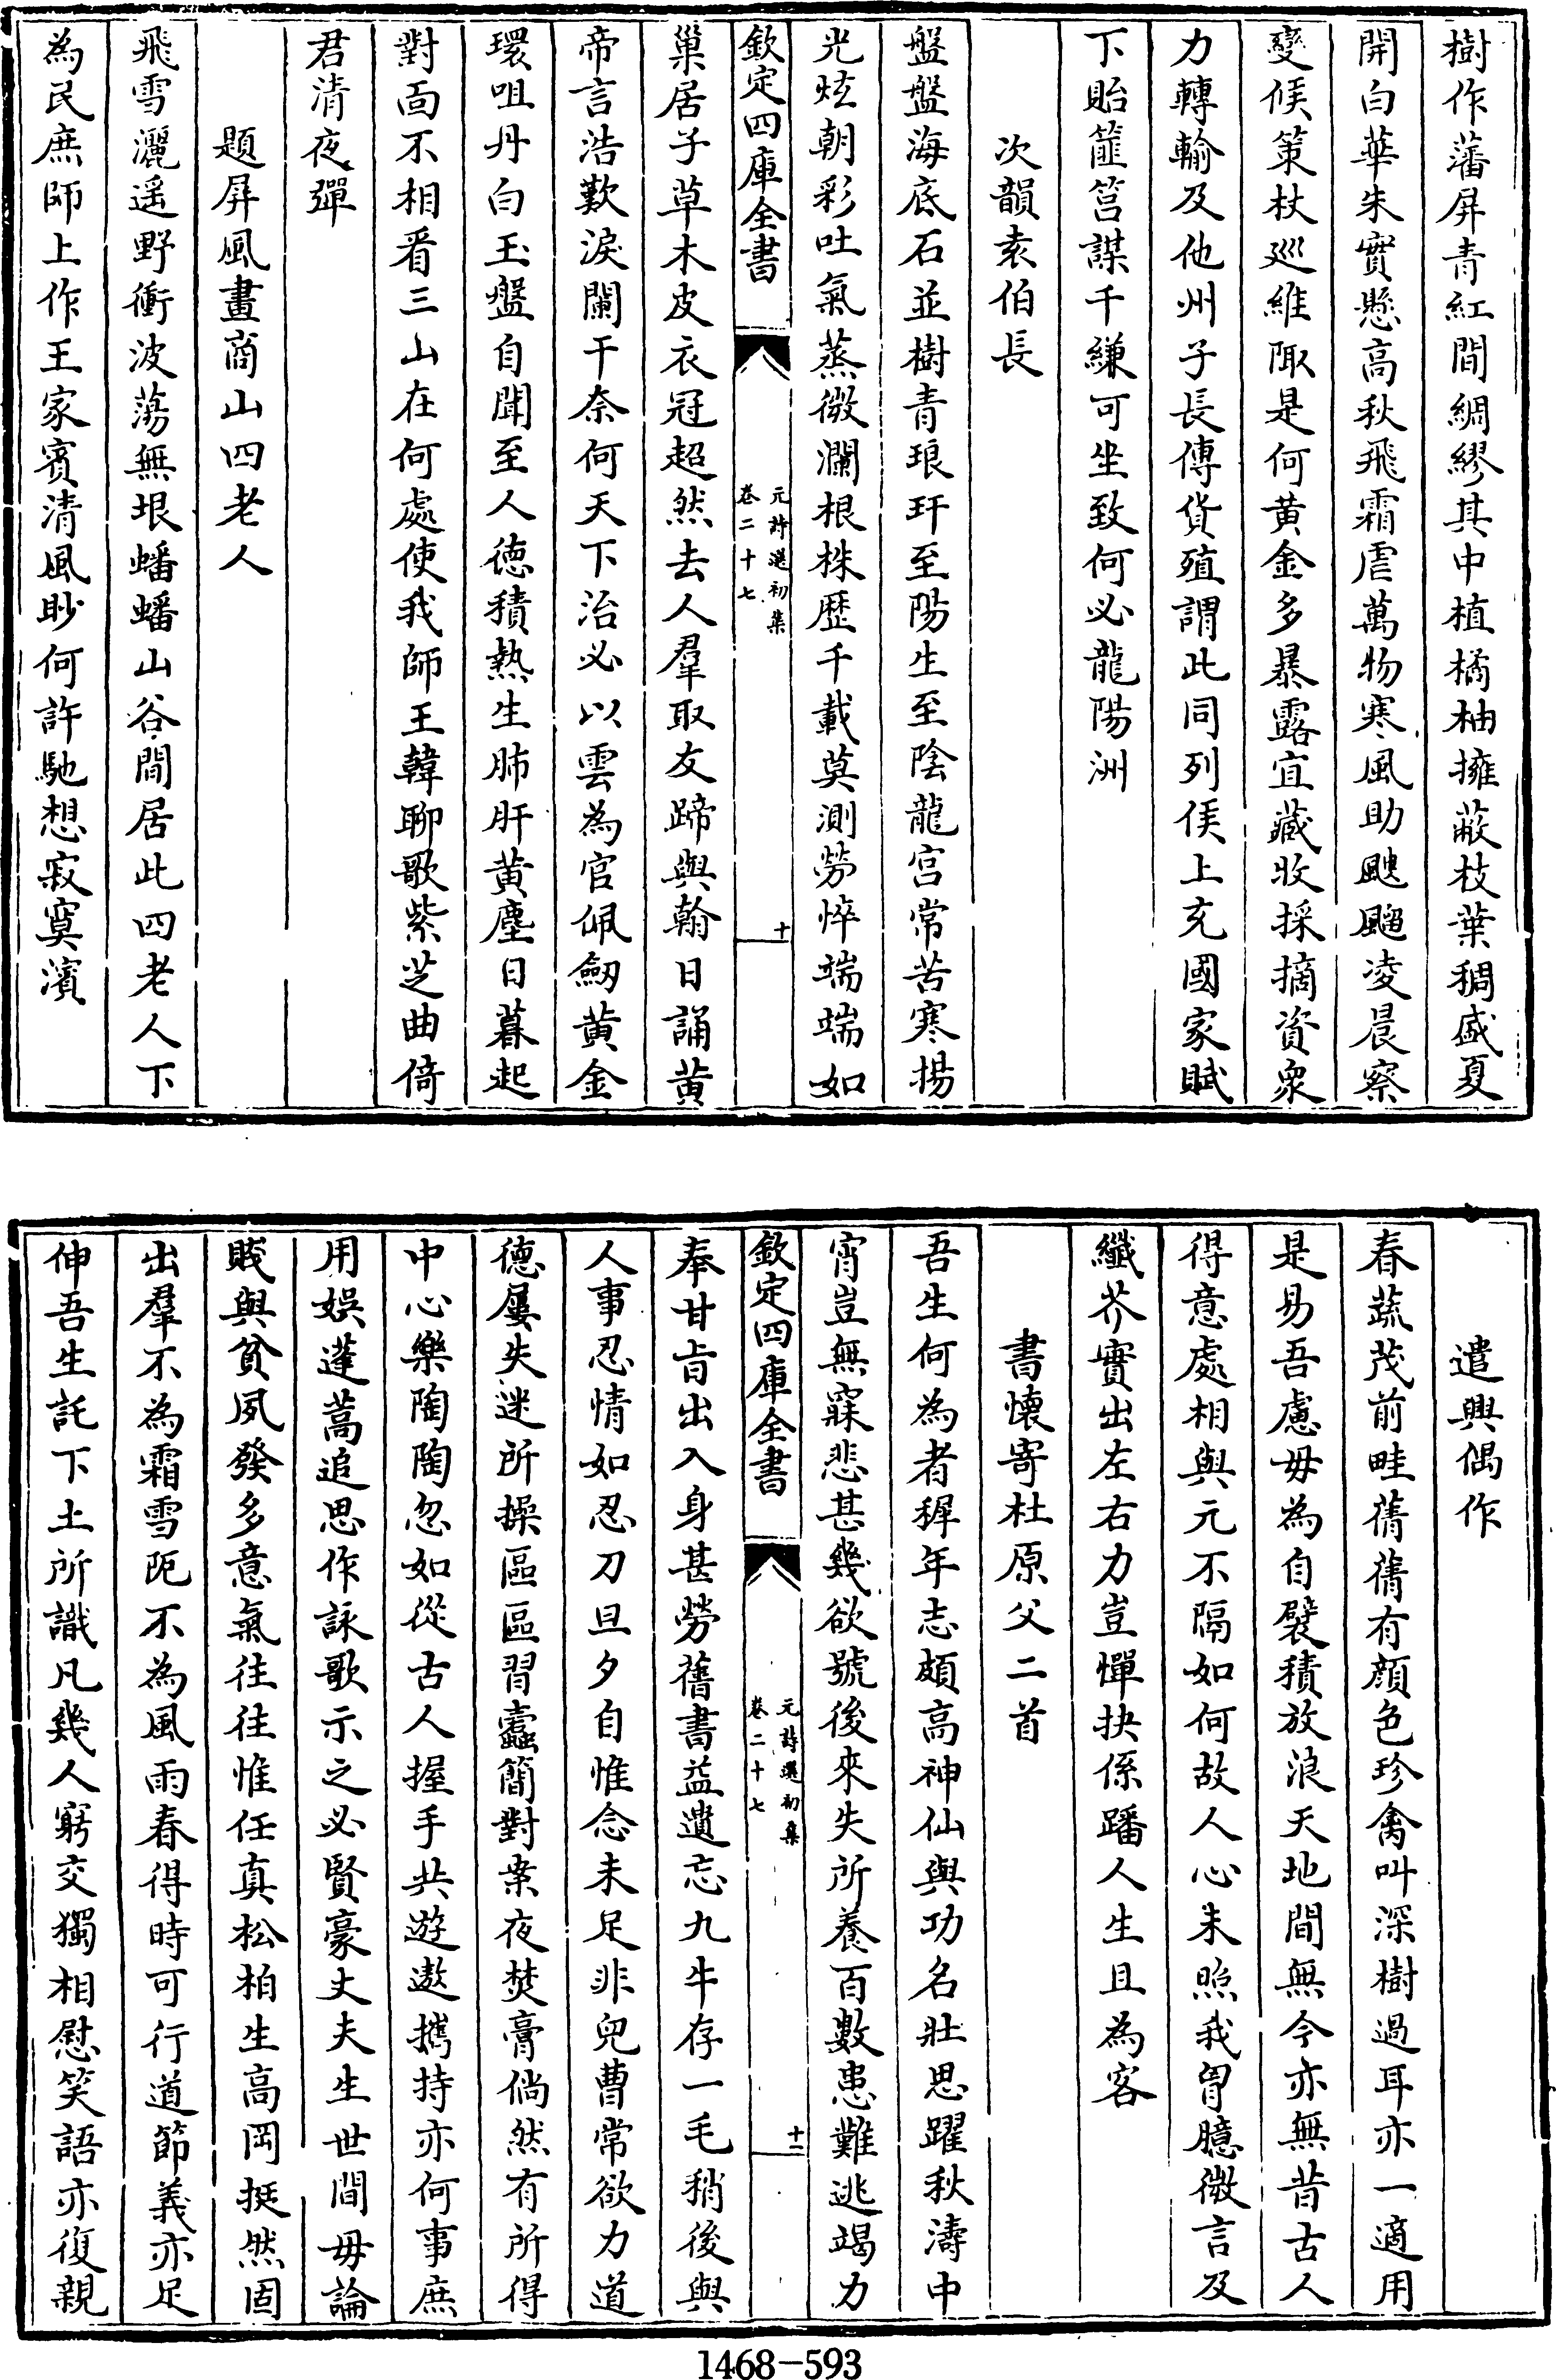 樹作藩屏青紅間綢繆其中植橘柚擁蔽枝葉稠盛夏
開白華朱實懸高秋飛霜虐萬物寒風助颼飀凌晨察
變候策杖巡維陬是何黄金多暴露宜藏收採摘資衆
力轉輸及他州子長傳貨殖謂此同列侯上充國家賦
下貽篚筥謀千縑可坐致何必龍陽洲
次韻袁伯長
盤盤海底石並樹青琅玕至陽生至陰龍宫常苦寒揚
光炫朝彩吐氣蒸微瀾根株歴千載莫測勞悴端端如
欽定四庫全書
元詩選初集
卷二十七
十
巢居子草木皮衣冠超然去人羣取友蹄與翰日誦黄
帝言浩歎淚闌干奈何天下治必以雲為官佩劒黄金
環咀丹白玉盤自聞至人徳積熱生肺肝黄塵日暮起
對面不相看三山在何處使我師王韓聊歌紫芝曲倚
君清夜彈
題屏風畫商山四老人
飛雪灑遥野衝波蕩無垠蟠蟠山谷間居此四老人下
為民庶師上作王家賓清風眇何許馳想寂寞濱
遣興偶作
春蔬茂前畦蒨蒨有顔色珍禽叫深樹過耳亦一適用
是易吾慮毋為自襞積放浪天地間無今亦無昔古人
得意處相與元不隔如何故人心未照我胷臆微言及
纖芥實出左右力豈憚抉係蹯人生且為客
書懷寄杜原父二首
吾生何為者穉年志頗高神仙與功名壯思躍秋濤中
宵豈無寐悲甚幾欲號後來失所養百數患難逃竭力
欽定四庫全書
元詩選初集
卷二十七
十一
奉甘旨出入身甚勞舊書益遺忘九牛存一毛稍後與
人事忍情如忍刀旦夕自惟念未足非兒曹常欲力道
德屢失迷所操區區習蠹簡對案夜焚膏倘然有所得
中心樂陶陶忽如從古人握手共遊遨攜持亦何事庶
用娯蓬蒿追思作詠歌示之必賢豪丈夫生世間毋論
賤與貧夙發多意氣往往惟任真松柏生高岡挺然固
出羣不為霜雪阨不為風雨春得時可行道節義亦足
伸吾生託下土所識凡幾人窮交獨相慰笑語亦復親
1468-593